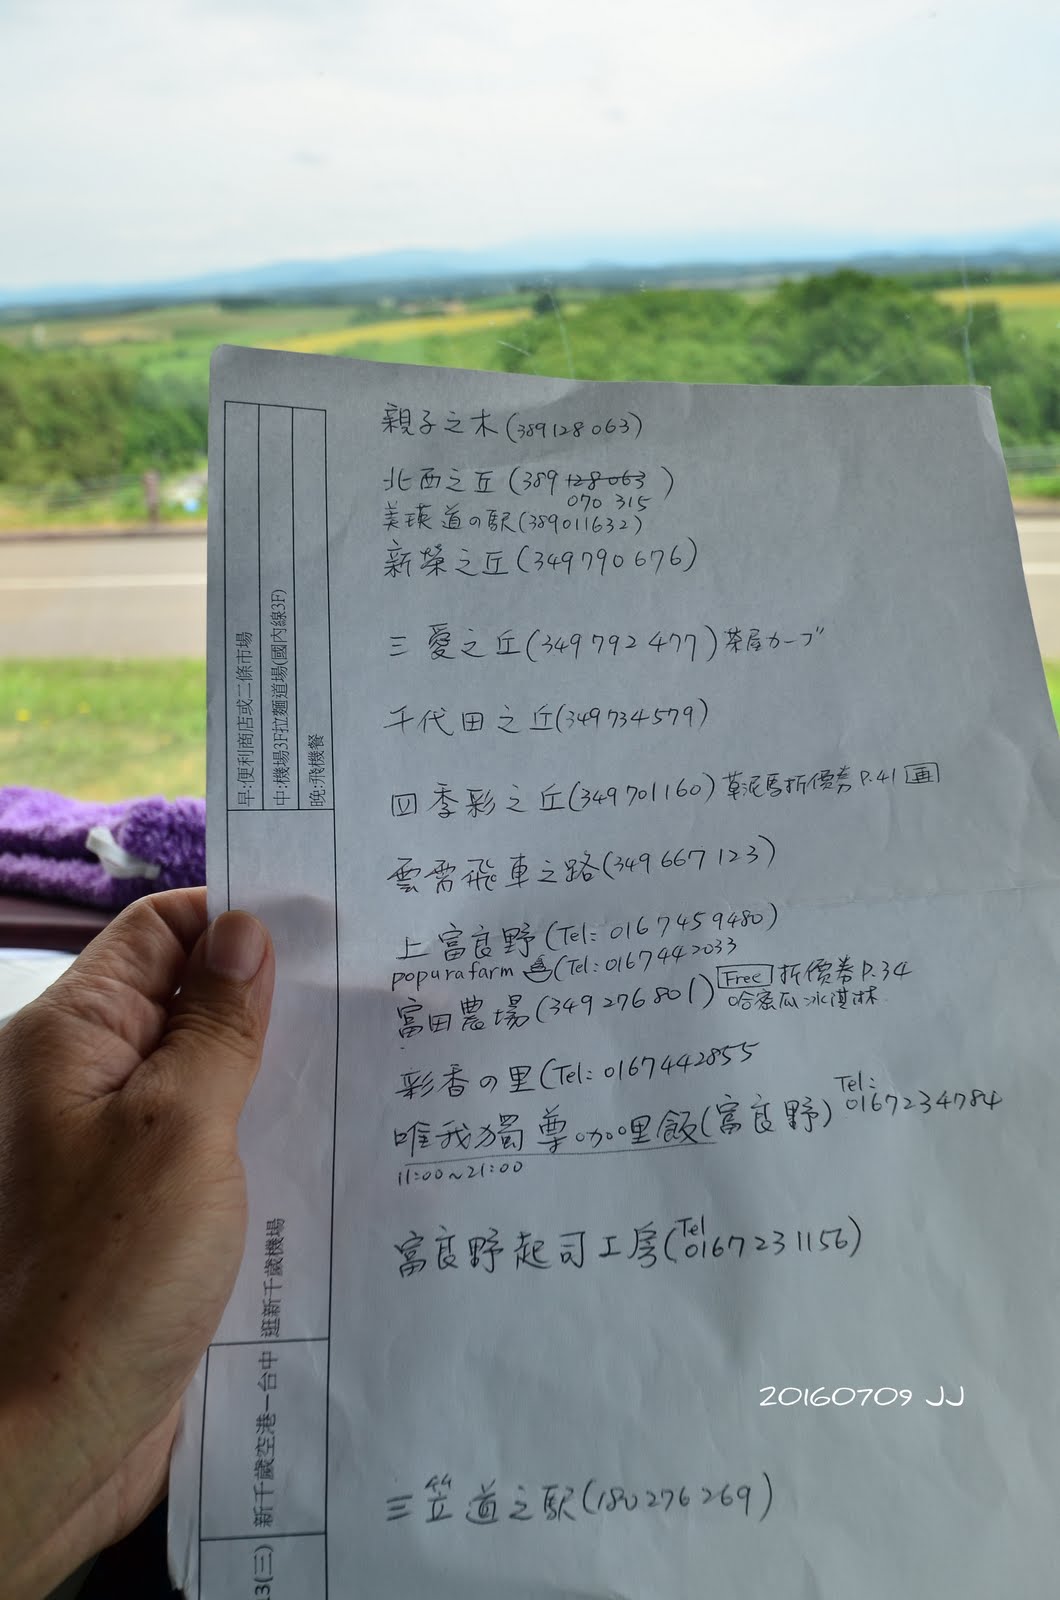 親子之木(389128063)
北西之丘(389 128 063)
070 315
美瑛道の駅(389011632)
新榮之丘(349790676)
三愛之丘(349792477)茶屋カーブ
千代田之丘(349734579)
四季彩之丘(349701160)草泥馬折價券P.41 画
雲霄飛車之路(349667123)
上富良野(Tel: 0167459480)
popurafarm (Tel: 0167442033
富田農場(349276801) Free 折價券P.34
哈蜜瓜冰淇淋
彩香の里(Tel: 0167442855
唯我獨尊咖哩飯(富良野) Tel: 0167234784
11:00~21:00
富良野起司工房(Tel 0167231156)
三笠道之駅(180276269)
早:便利商店或二條市場
中:機場3F拉麵道場(國內線3F)
晚:飛機餐
逛新千歲機場
新千歲空港—台中
13(三)
20160709 JJ